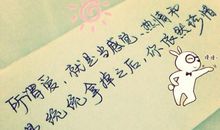 所谓爱，就是当感觉、热情和
浪漫统统拿掉之后，你仍然珍惜